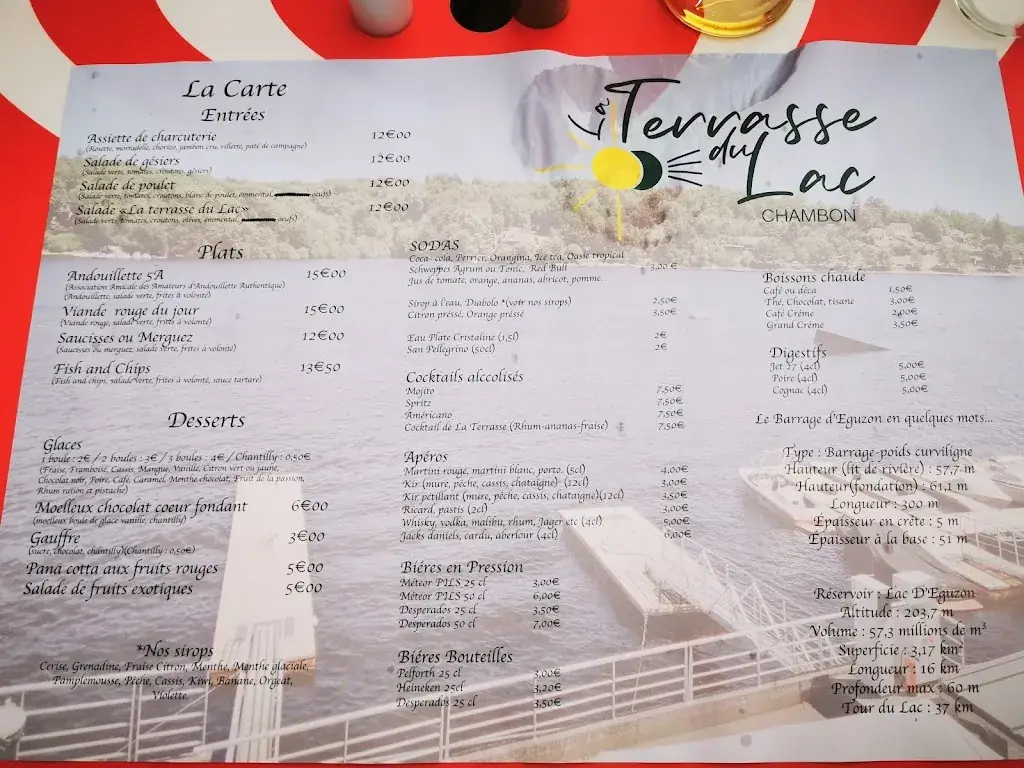 La Carte
Entrées
Assiette de charcuterie 12€00
(Rosette, mortadelle, chorizo, jambon cru, rillette, paté de campagne)
Salade de gésiers 12€00
(Salade verte, tomates, croutons, gésiers)
Salade de poulet 12€00
(Salade verte, tomates, croutons, blanc de poulet, emmental, oeufs)
Salade «La terrasse du Lac» 12€00
(Salade verte, tomates, croutons, olives, emmental, oeufs)
Plats
Andouillette 5A 15€00
(Association Amicale des Amateurs d'Andouillette Authentique)
(Andouillette, salade verte, frites à volonté)
Viande rouge du jour 15€00
(Viande rouge, salade verte, frites à volonté)
Saucisses ou Merguez 12€00
(Saucisses ou merguez, salade verte, frites à volonté)
Fish and Chips 13€50
(Fish and chips, salade verte, frites à volonté, sauce tartare)
Desserts
Glaces
1 boule : 2€ / 2 boules : 3€ / 3 boules : 4€ / Chantilly : 0,50€
(Fraise, Framboise, Cassis, Mangue, Vanille, Citron vert ou jaune,
Chocolat noir, Poire, Café, Caramel, Menthe chocolat, Fruit de la passion,
Rhum raisin et pistache)
Moelleux chocolat coeur fondant 6€00
(moelleux boule de glace vanille, chantilly)
Gauffre 3€00
(sucre, chocolat, chantilly)(Chantilly : 0,50€)
Pana cotta aux fruits rouges 5€00
Salade de fruits exotiques 5€00
*Nos sirops
Cerise, Grenadine, Fraise Citron, Menthe, Menthe glaciale,
Pamplemousse, Pêche, Cassis, Kiwi, Banane, Orgeat,
Violette.
La Terrasse
du
Lac
CHAMBON
SODAS
Coca- cola, Perrier, Orangina, Ice tea, Oasis tropical
Schweppes Agrum ou Tonic, Red Bull 3,00 €
Jus de tomate, orange, ananas, abricot, pomme.
Sirop à l'eau, Diabolo *(voir nos sirops) 2,50€
Citron préssé, Orange préssé 3,50€
Eau Plate Cristaline (1,5l) 2€
San Pellegrino (50cl) 2€
Cocktails alccolisés
Mojito 7,50€
Spritz 7,50€
Américano 7,50€
Cocktail de La Terrasse (Rhum-ananas-fraise) 7,50€
Apéros
Martini rouge, martini blanc, porto. (5cl) 4,00€
Kir (mure, pêche, cassis, chataigne) (12cl) 3,00€
Kir pétillant (mure, pêche, cassis, chataigne)(12cl) 3,50€
Ricard, pastis (2cl) 3,00€
Whisky, vodka, malibu, rhum, Jager etc (4cl) 5,00€
Jacks daniels, cardu, aberlour (4cl) 6,00€
Biéres en Pression
Météor PILS 25 cl 3,00€
Météor PILS 50 cl 6,00€
Desperados 25 cl 3,50€
Desperados 50 cl 7,00€
Biéres Bouteilles
Pelforth 25 cl 3,00€
Heineken 25cl 3,20€
Desparados 25 cl 3,50€
Boissons chaude
Café ou déca 1,50€
Thé, Chocolat, tisane 3,00€
Café Crème 2,00€
Grand Crème 3,50€
Digestifs
Jet 27 (4cl) 5,00€
Poire (4cl) 5,00€
Cognac (4cl) 5,00€
Le Barrage d'Eguzon en quelques mots...
Type : Barrage-poids curviligne
Hauteur (lit de rivière) : 57,7 m
Hauteur(fondation) : 61,1 m
Longueur : 300 m
Épaisseur en crête : 5 m
Épaisseur à la base : 51 m
Réservoir : Lac D'Eguzon
Altitude : 203,7 m
Volume : 57,3 millions de m³
Superficie : 3,17 km²
Longueur : 16 km
Profondeur max : 60 m
Tour du Lac : 37 km